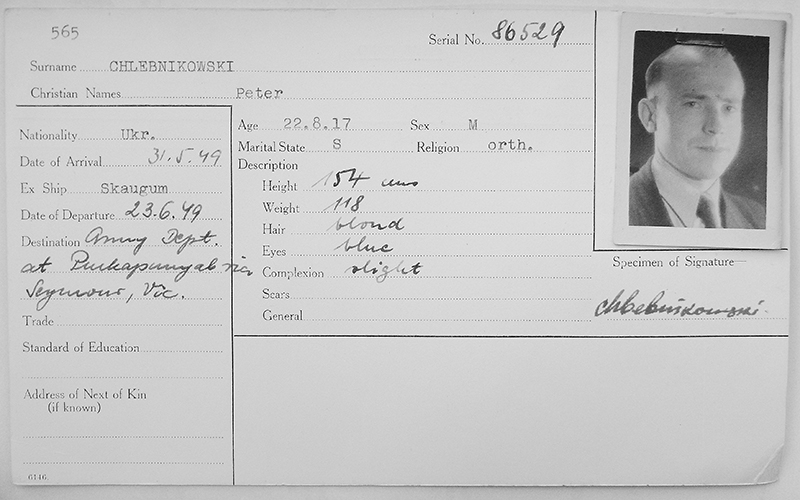 565
Serial No. 86529
Surname CHLEBNIKOWSKI
Christian Names Peter
Nationality Ukr.
Date of Arrival 31.5.49
Ex Ship Skaugum
Date of Departure 23.6.49
Destination Army Dept.
at Puckapunyal via
Seymour, Vic.
Trade
Standard of Education
Address of Next of Kin
(if known)
6146.
Age 22.8.17 Sex M
Marital State S Religion orth.
Description
Height 154 cms
Weight 118
Hair blond
Eyes blue
Complexion slight
Scars
General
Specimen of Signature
Chlebnikowski